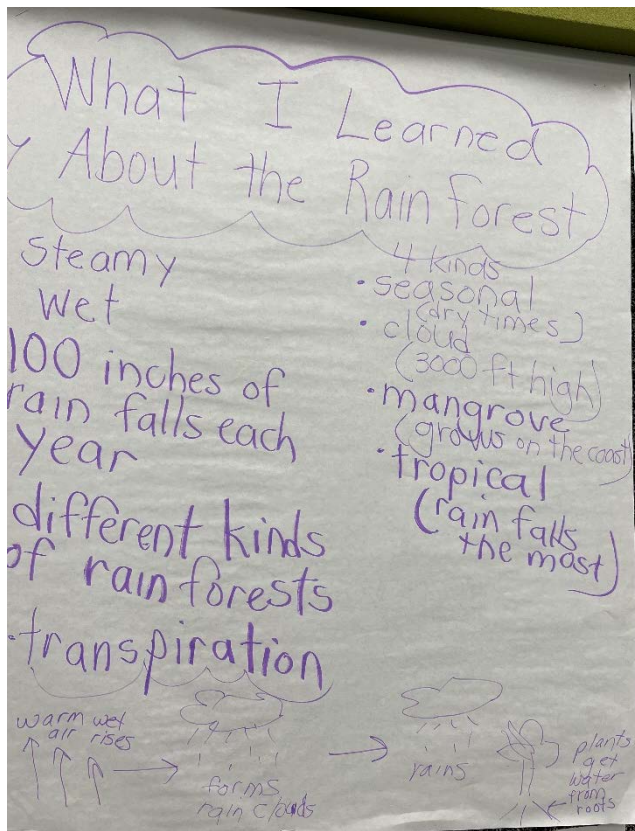 What I Learned
About the Rainforest
steamy
wet
100 inches of
rain falls each
year
different kinds
of rainforests
•transpiration
4 kinds
•seasonal
(dry times)
•cloud
(3000 ft high)
•mangrove
(grows on the coast)
•tropical
(rain falls
the most)
warm wet
air rises
forms
rain clouds
rains
plants
get
water
from
roots